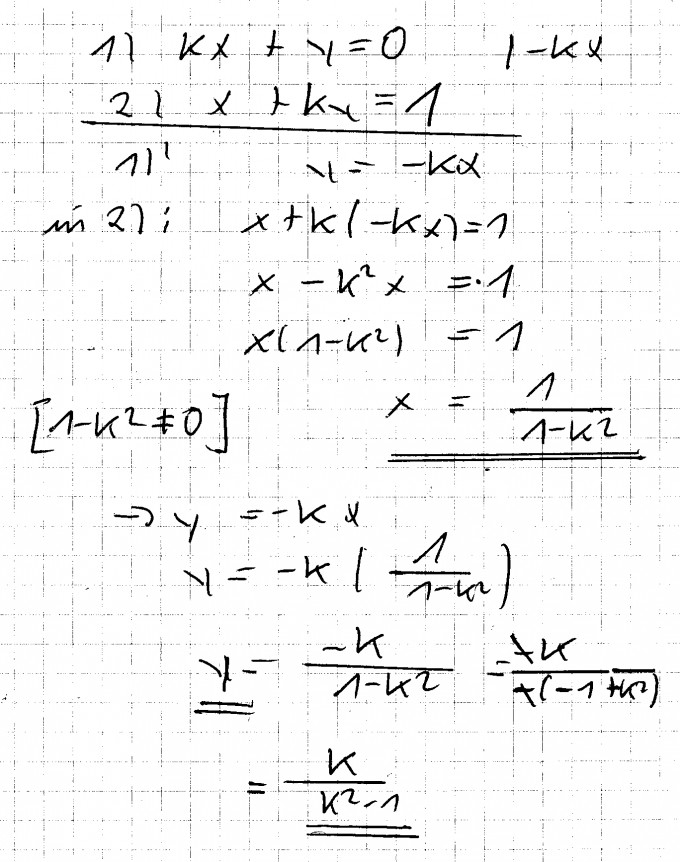 1) kx + y = 0 | -kx
2) x + ky = 1
1)' y = -kx
in 2): x + k(-kx) = 1
x - k²x = 1
x(1-k²) = 1
[1-k² ≠ 0] x = 1/(1-k²)
→ y = -kx
y = -k (1/(1-k²))
y = -k/(1-k²) = -k/(-(-1+k²))
= k/(k²-1)